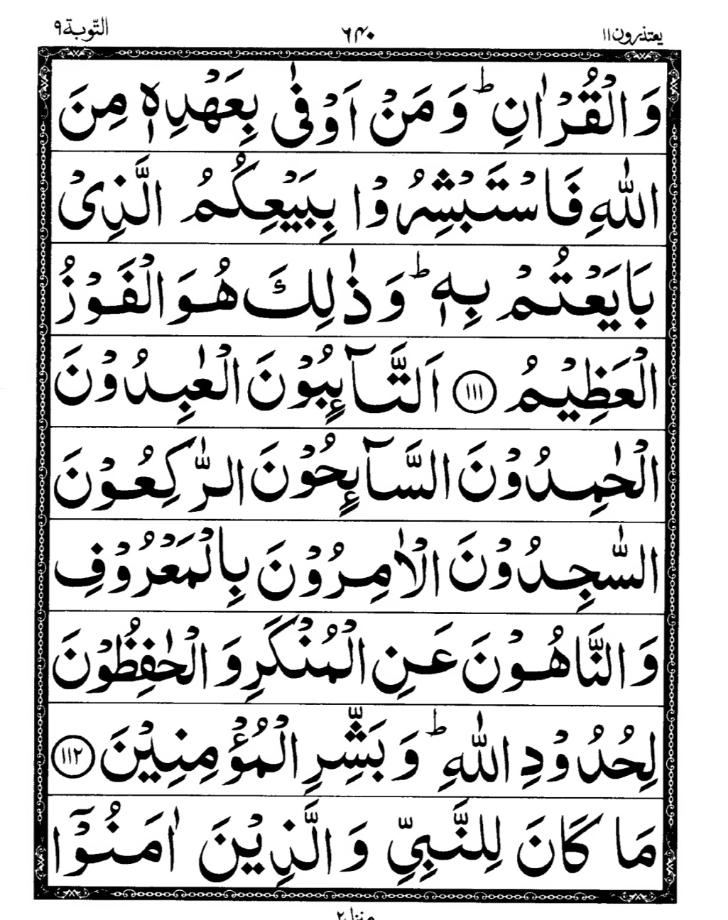 يعتذرون١١ ٦٤٠ التوبة٩
وَالْقُرْاٰنِ ؕ وَمَنْ اَوْفٰى بِعَهْدِهٖ مِنَ
اللّٰهِ فَاسْتَبْشِرُوْا بِبَيْعِكُمُ الَّذِىْ
بَايَعْتُمْ بِهٖ ؕ وَذٰلِكَ هُوَ الْفَوْزُ
الْعَظِيْمُ ﴿١١١﴾ اَلتَّآئِبُوْنَ الْعٰبِدُوْنَ
الْحٰمِدُوْنَ السَّآئِحُوْنَ الرّٰكِعُوْنَ
السّٰجِدُوْنَ الْاٰمِرُوْنَ بِالْمَعْرُوْفِ
وَالنَّاهُوْنَ عَنِ الْمُنْكَرِ وَالْحٰفِظُوْنَ
لِحُدُوْدِ اللّٰهِ ؕ وَبَشِّرِ الْمُؤْمِنِيْنَ ﴿١١٢﴾
مَا كَانَ لِلنَّبِىِّ وَالَّذِيْنَ اٰمَنُوْۤا
منزل٢